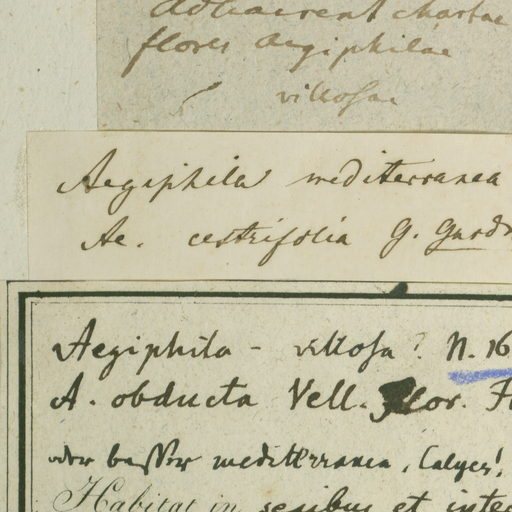 adhaerent chartae
flores Aegiphilae
villosae
Aegiphila mediterranea
Ae. cestrifolia G. Gardn
Aegiphila - villosa? N. 16
A. obducta Vell. Flor. F
oder besser mediterranea, Calyce!
Habitat in sepibus et inte